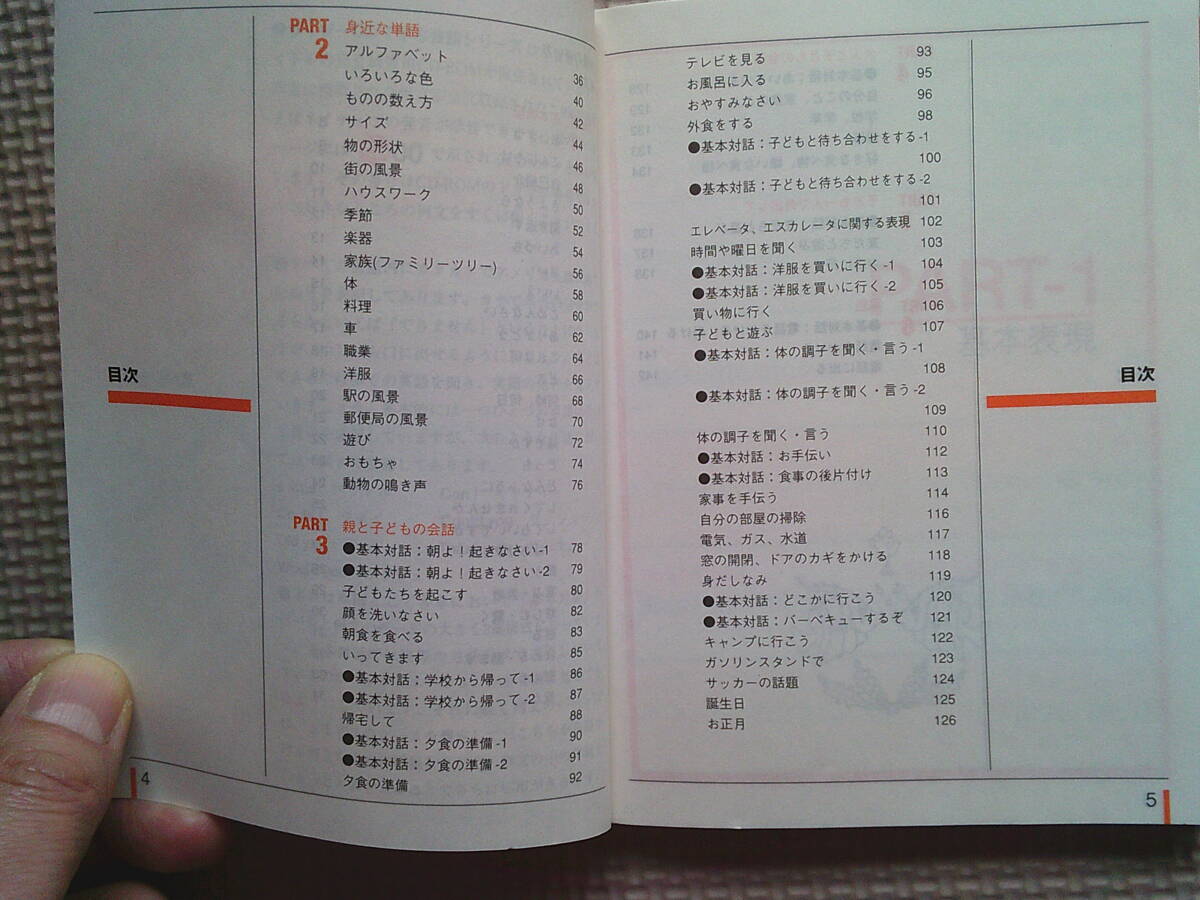 PART 2 身近な単語
アルファベット 36
いろいろな色 40
ものの数え方 42
サイズ 44
物の形状 46
街の風景 48
ハウスワーク 50
季節 52
楽器 54
家族(ファミリーツリー) 56
体 58
料理 60
車 62
職業 64
洋服 66
駅の風景 68
郵便局の風景 70
遊び 72
おもちゃ 74
動物の鳴き声 76
PART 3 親と子どもの会話
●基本対話：朝よ！起きなさい-1 78
●基本対話：朝よ！起きなさい-2 79
子どもたちを起こす 80
顔を洗いなさい 82
朝食を食べる 83
いってきます 85
●基本対話：学校から帰って-1 86
●基本対話：学校から帰って-2 87
帰宅して 88
●基本対話：夕食の準備-1 90
●基本対話：夕食の準備-2 91
夕食の準備 92
目次
4
テレビを見る 93
お風呂に入る 95
おやすみなさい 96
外食をする 98
●基本対話：子どもと待ち合わせをする-1
100
●基本対話：子どもと待ち合わせをする-2
101
エレベータ、エスカレータに関する表現 102
時間や曜日を聞く 103
●基本対話：洋服を買いに行く-1 104
●基本対話：洋服を買いに行く-2 105
買い物に行く 106
子どもと遊ぶ 107
●基本対話：体の調子を聞く・言う-1
108
●基本対話：体の調子を聞く・言う-2
109
体の調子を聞く・言う 110
●基本対話：お手伝い 112
●基本対話：食事の後片付け 113
家事を手伝う 114
自分の部屋の掃除 116
電気、ガス、水道 117
窓の開閉、ドアのカギをかける 118
身だしなみ 119
●基本対話：どこかに行こう 120
●基本対話：バーベキューするぞ 121
キャンプに行こう 122
ガソリンスタンドで 123
サッカーの話題 124
誕生日 125
お正月 126
目次
5